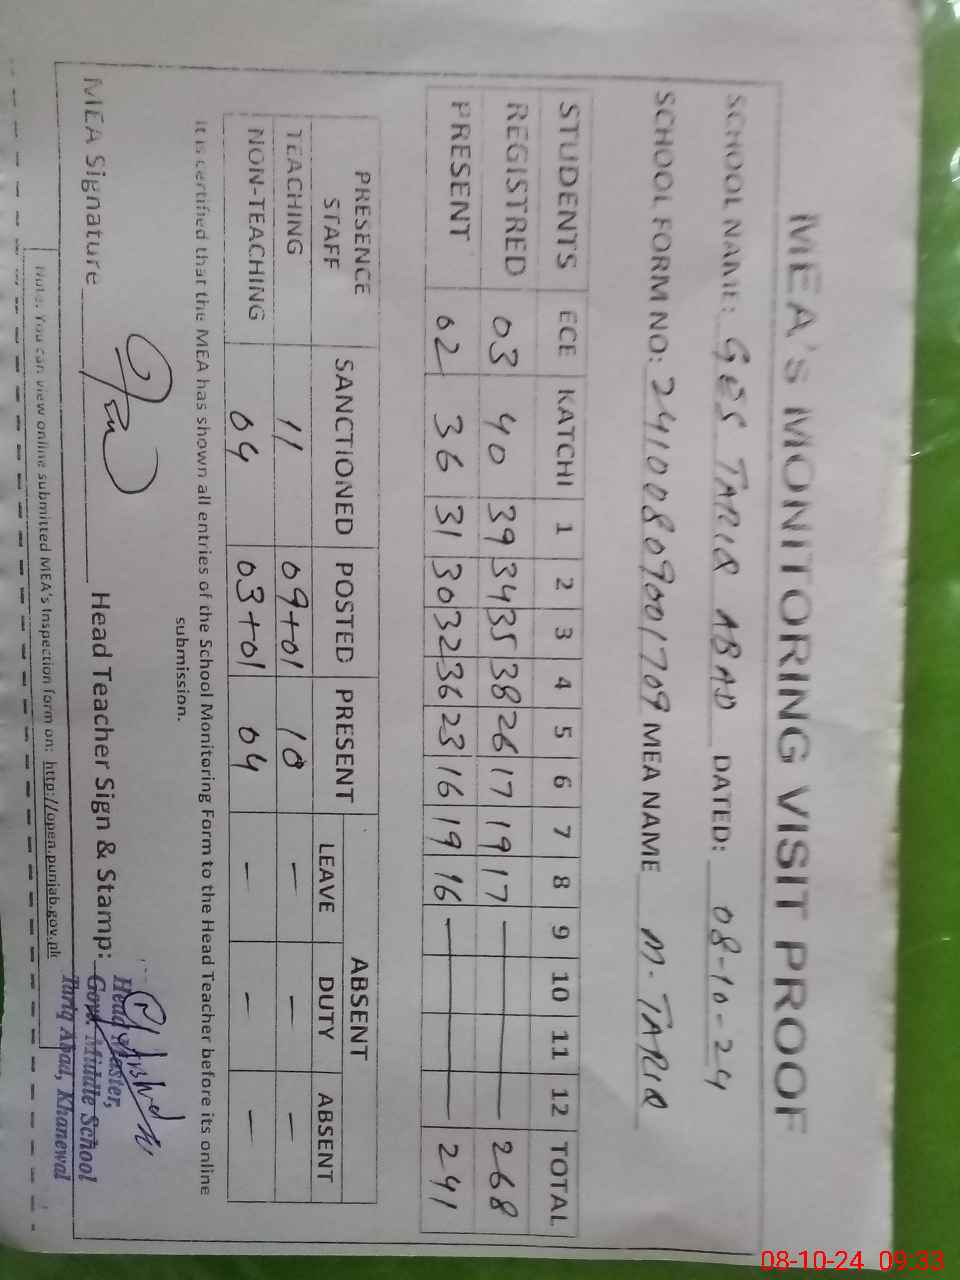 MEA's MONITORING VISIT PROOF
SCHOOL NAME: GES TARIQ ABAD DATED: 08-10-24
SCHOOL FORM NO: 24100809001709 MEA NAME M. TARIQ
STUDENTS ECE KATCHI 1 2 3 4 5 6 7 8 9 10 11 12 TOTAL
REGISTRED 03 40 39 34 35 38 26 17 19 17 — 268
PRESENT 02 36 31 30 32 36 23 16 19 16 — 241
PRESENCE STAFF SANCTIONED POSTED PRESENT ABSENT
LEAVE DUTY ABSENT
TEACHING 11 09+01 10 — — —
NON-TEACHING 04 03+01 04 — — —
It is certified that the MEA has shown all entries of the School Monitoring Form to the Head Teacher before its online
submission.
MEA Signature Head Teacher Sign & Stamp:
Head Master,
Govt. Middle School
Tariq Abad, Khanewal
Note: You can view online submitted MEA's Inspection form on: http://open.punjab.gov.pk
08-10-24 09:33